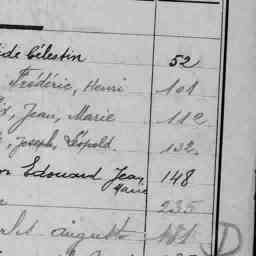 ide Célestin 52
Frédéric, Henri 101
, Jean, Marie 112
, Joseph, Léopold. 132
Edouard Jean 148
Marie
235
Auguste 181
D